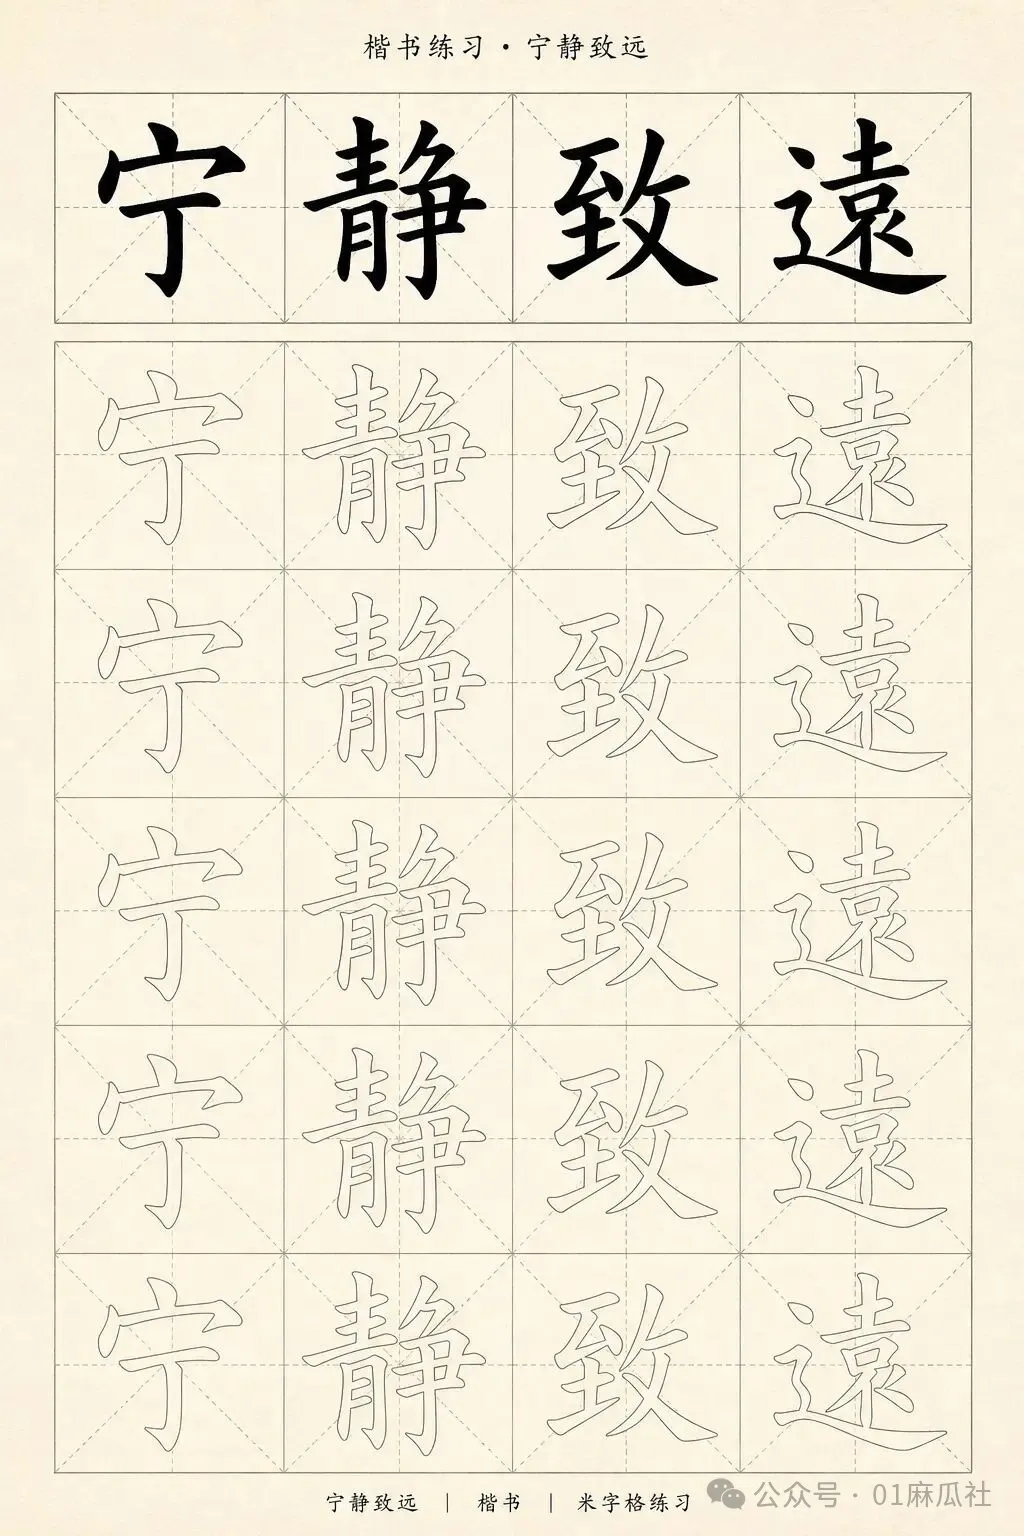 楷书练习·宁静致远
宁静致遠
宁静致遠
宁静致遠
宁静致遠
宁静致遠
宁静致遠
宁静致远 | 楷书 | 米字格练习
公众号·01麻瓜社